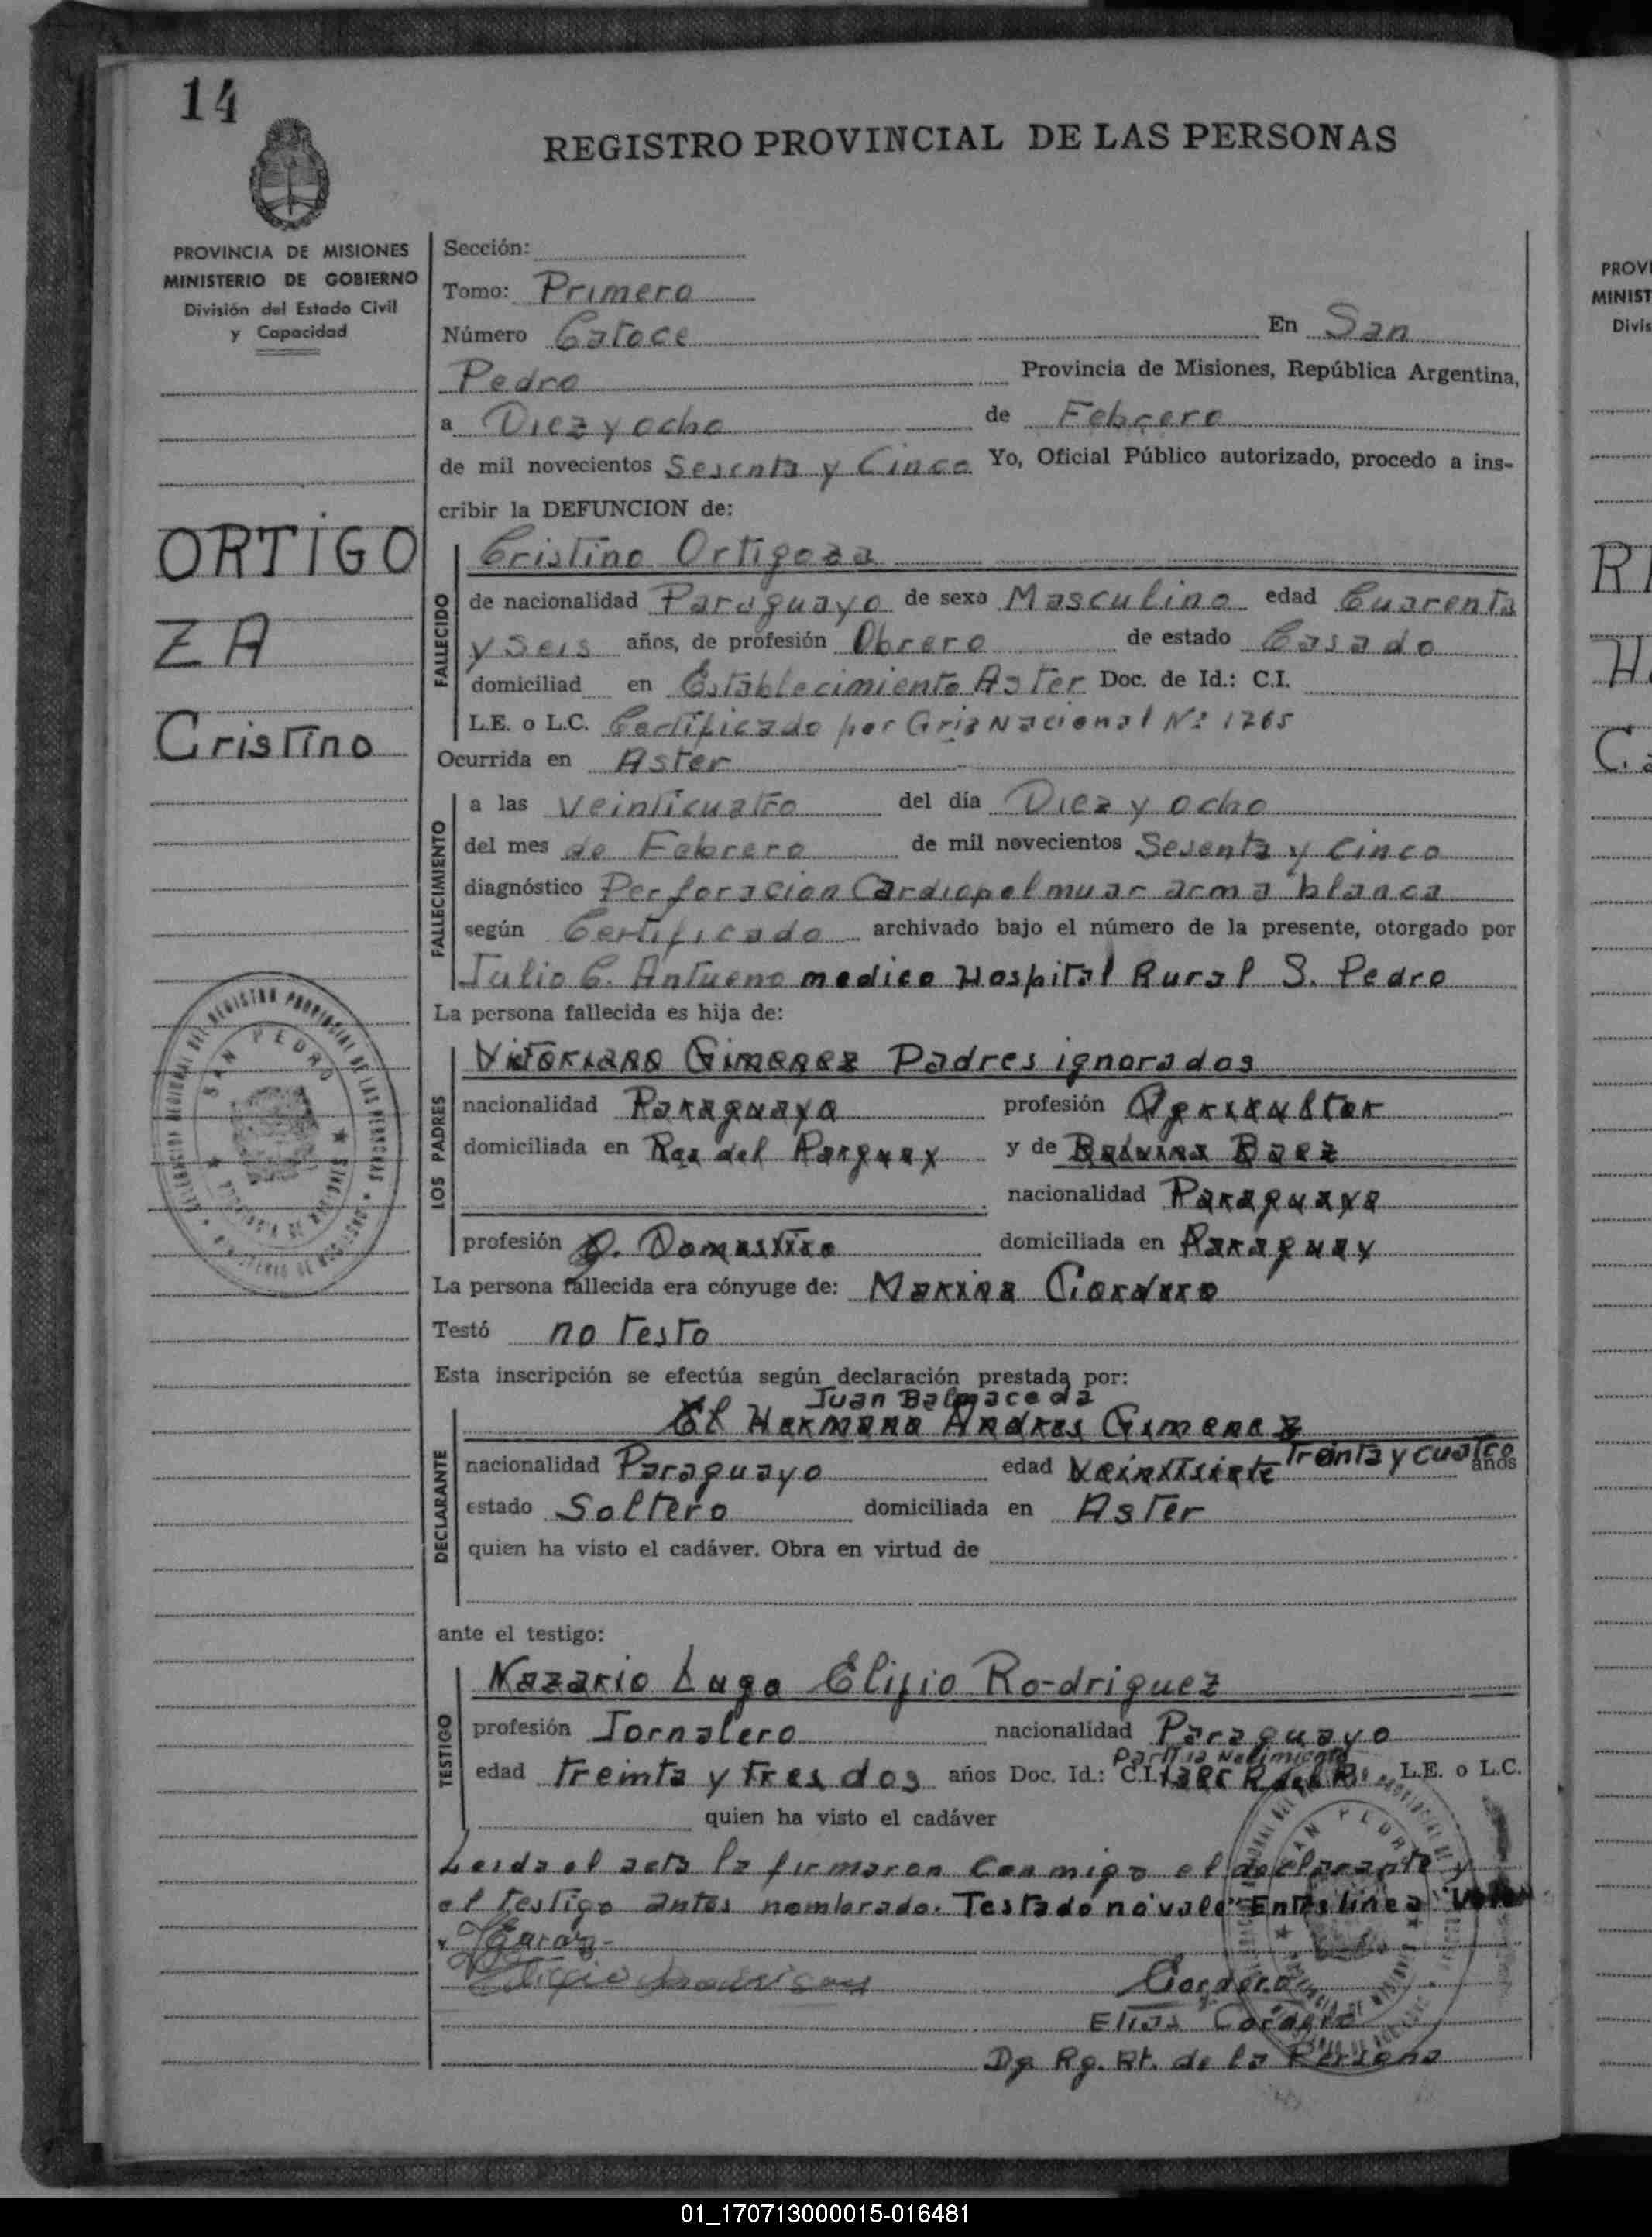 14
REGISTRO PROVINCIAL DE LAS PERSONAS
PROVINCIA DE MISIONES
MINISTERIO DE GOBIERNO
División del Estado Civil
y Capacidad
Sección:
Tomo: Primero
Número Catoce En San
Pedro Provincia de Misiones, República Argentina,
a Diez y ocho de Febrero
de mil novecientos Sesenta y Cinco Yo, Oficial Público autorizado, procedo a ins-
cribir la DEFUNCION de:
ORTIGO
ZA
Cristino
FALLECIDO
Cristino Ortigoza
de nacionalidad Paraguayo de sexo Masculino edad Cuarenta
y Seis años, de profesión Obrero de estado Casado
domiciliad en Establecimiento Aster Doc. de Id.: C.I.
L.E. o L.C. Certificado por Gria Nacional Nº 1265
Ocurrida en Aster
FALLECIMIENTO
a las veinticuatro del día Diez y ocho
del mes de Febrero de mil novecientos Sesenta y Cinco
diagnóstico Perforacion Cardiopolmuar arma blanca
según Certificado archivado bajo el número de la presente, otorgado por
Julio C. Antueno medico Hospital Rural S. Pedro
La persona fallecida es hija de:
LOS PADRES
Vitoriano Gimenez Padres ignorados
nacionalidad Paraguayo profesión Agricultor
domiciliada en Rea del Parguay y de Baez
nacionalidad Paraguaya
profesión Q. Domestico domiciliada en Paraguay
La persona fallecida era cónyuge de: Marina Cordero
Testó no Testo
Esta inscripción se efectúa según declaración prestada por:
DECLARANTE
Juan Balmaceda
El Hermano Andres Gimenez
nacionalidad Paraguayo edad Veintisiete Treinta y cuatro años
estado Soltero domiciliada en Aster
quien ha visto el cadáver. Obra en virtud de
ante el testigo:
TESTIGO
Nazario Lugo Elijio Ro-driguez
profesión Jornalero nacionalidad Paraguayo
Partida Nacimiento
edad treinta y tres dos años Doc. Id.: C.I. L.E. o L.C.
quien ha visto el cadáver
Leida el acta la firmaron conmigo el declarante y
el testigo antes nombrado. Testado no vale Entre linea Vale
Cordero
Elias Cordero
Dg. Rg. Rt. de la Persona
PROVI
MINIST
Divis
01_170713000015-016481